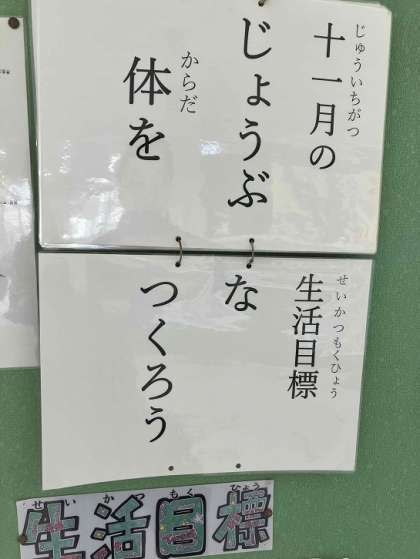 十一月の
じゅういちがつ
生活目標
せいかつもくひょう
じょうぶな
体を
からだ
つくろう
せいかつもくひょう
生活目標